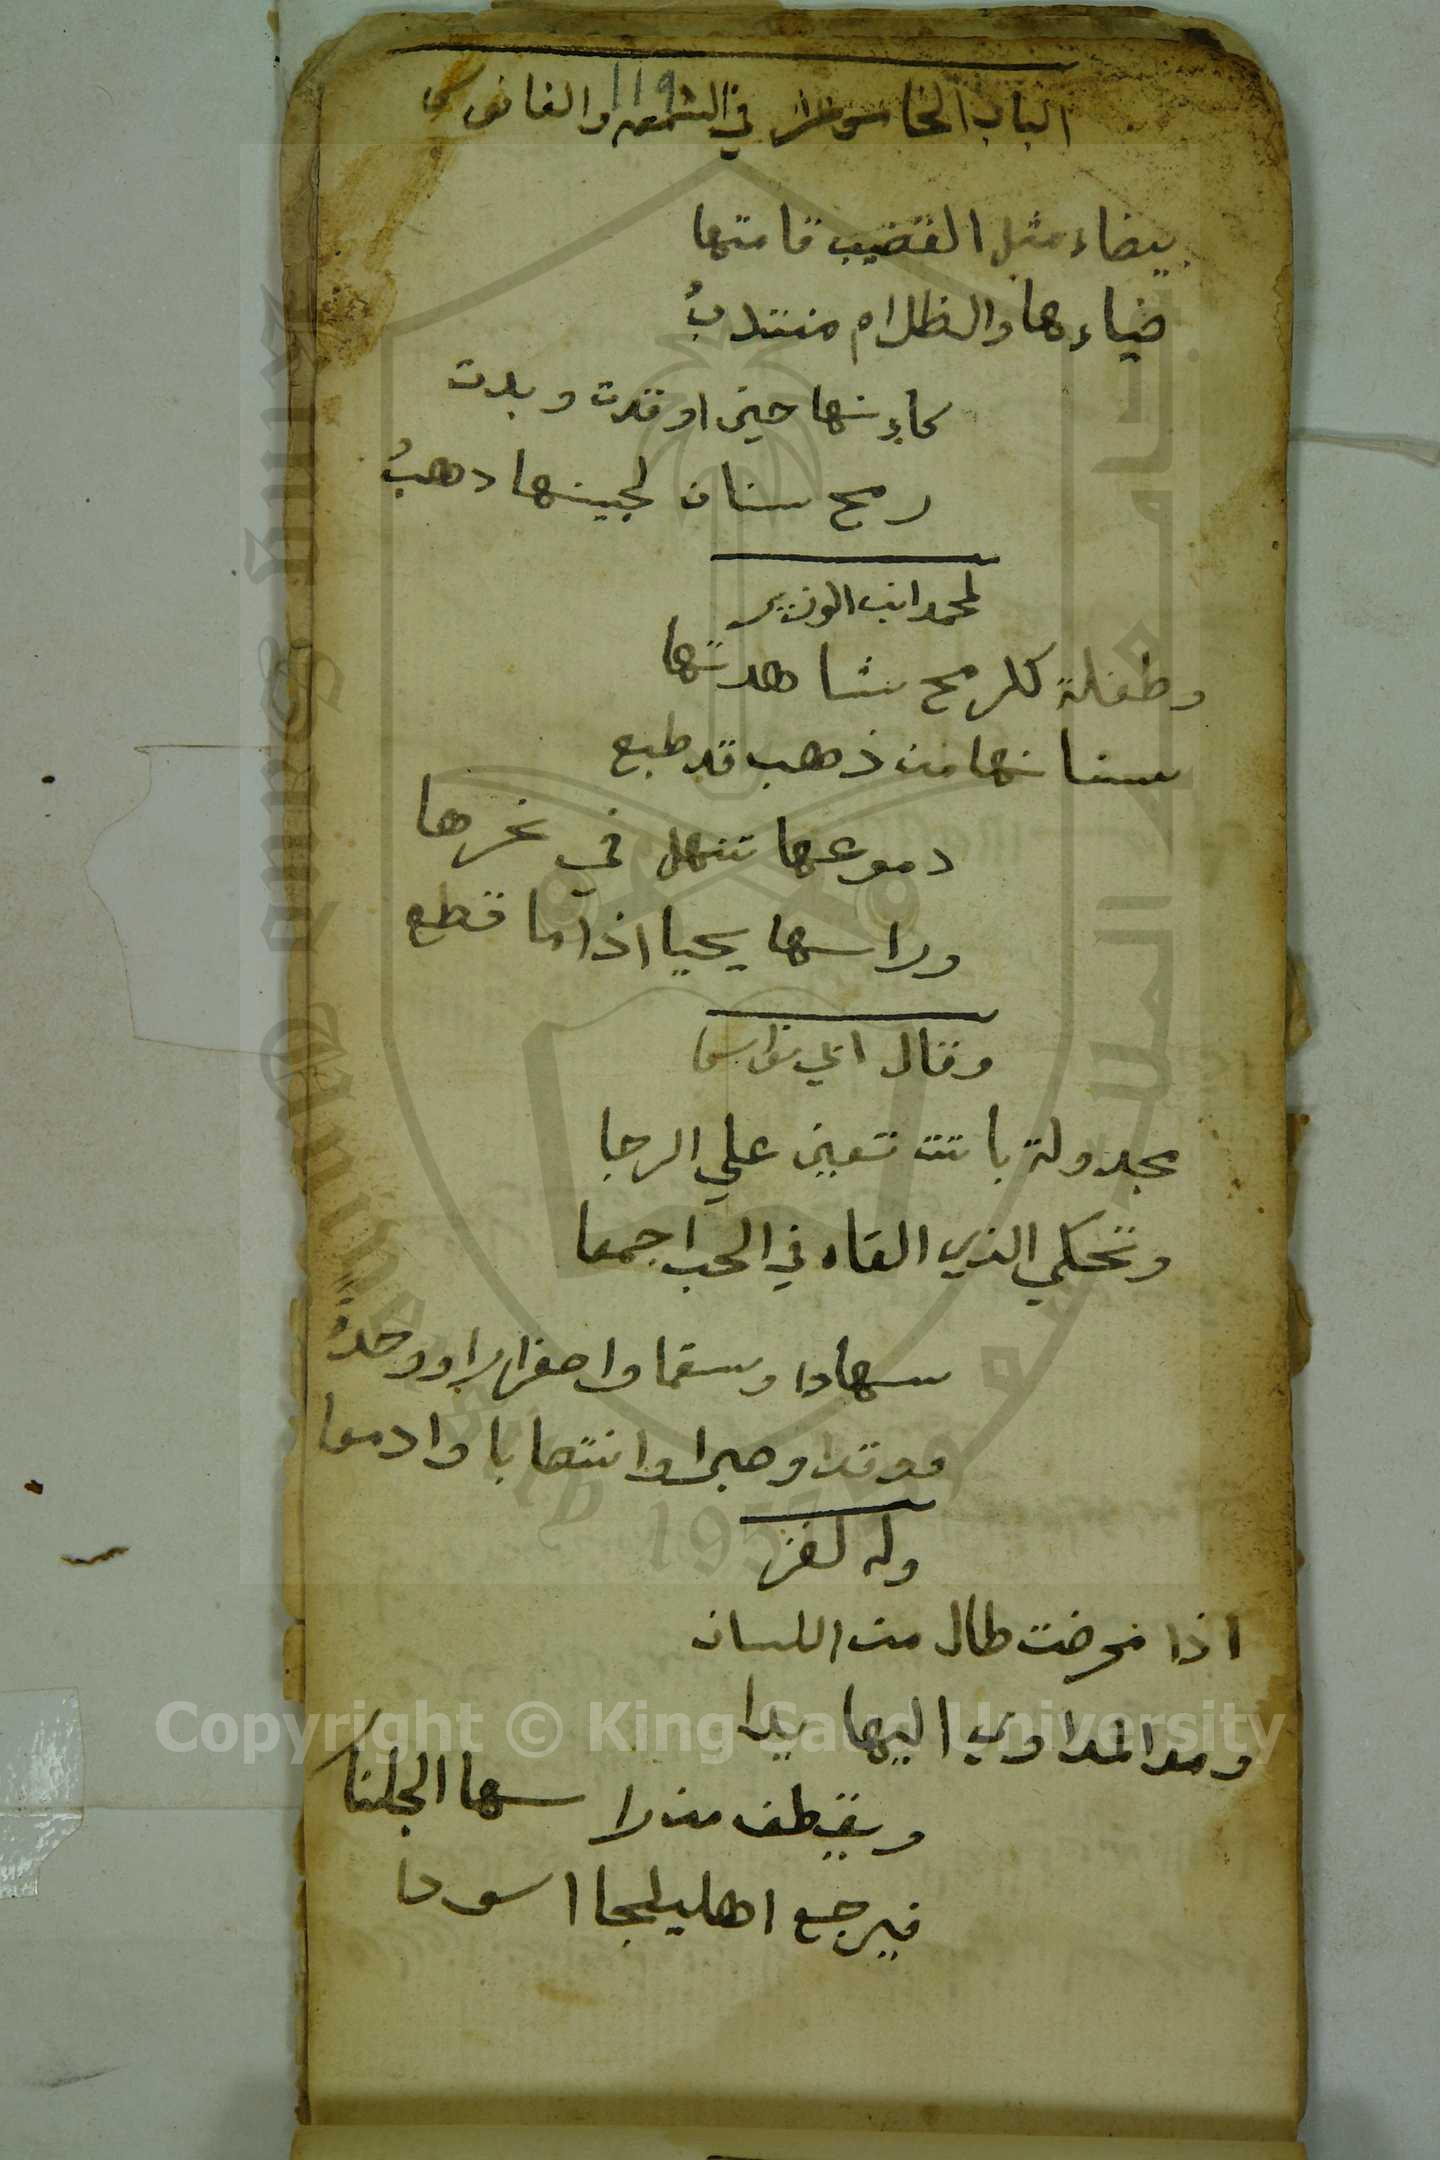 119
الباب الخامس عشر في الشمعه والفانوس
بيضاء مثل القضيب قامتها
ضياءها والظلام منتدبُ
كاءنها حين اوقدت وبدت
رمح سنان لجينها دهبُ
لمحمد ابن الوزير
وطفلة كلرمح شاهدتها
سنانها من ذهب قد طبع
دموعها تنهل في نحرها
وراسها يحيا اذا ما قطع
وقال ابي نواس
مجدولة باتت تعين علي الرجا
وتحكي الذي القاه في الحب اجمعا
سهادا وسقما واصفرارا ووحدة
ووقدا وصبرا وانتصابا وادمعا
وله لغز
اذا مرضت طال من اللسان
ومد المداوي اليها يدا
ويقطف من راسها الجلنار
فيرجع اهليلجا اسودا
Copyright © King Saud University
جامعة الملك سعود
King Saud University
1957